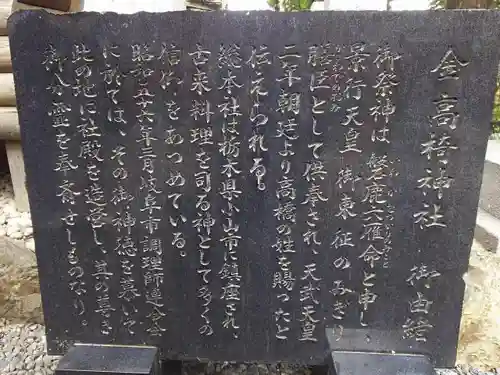 金高椅神社 御由緒
御祭神は 磐鹿六雁命と申し、
景行天皇 御東征のみぎり
膳臣として供奉され、天武天皇
二年朝廷より高橋の姓を賜ったと
伝えられる。
総本社は栃木県小山市に鎮座され、
古来料理を司る神として多くの
信仰をあつめている。
昭和五六年三月岐阜市調理師連合会
に於ては、その御神徳を慕いて
此の地に社殿を造営し 其の善き
御分霊を奉斎せしものなり。